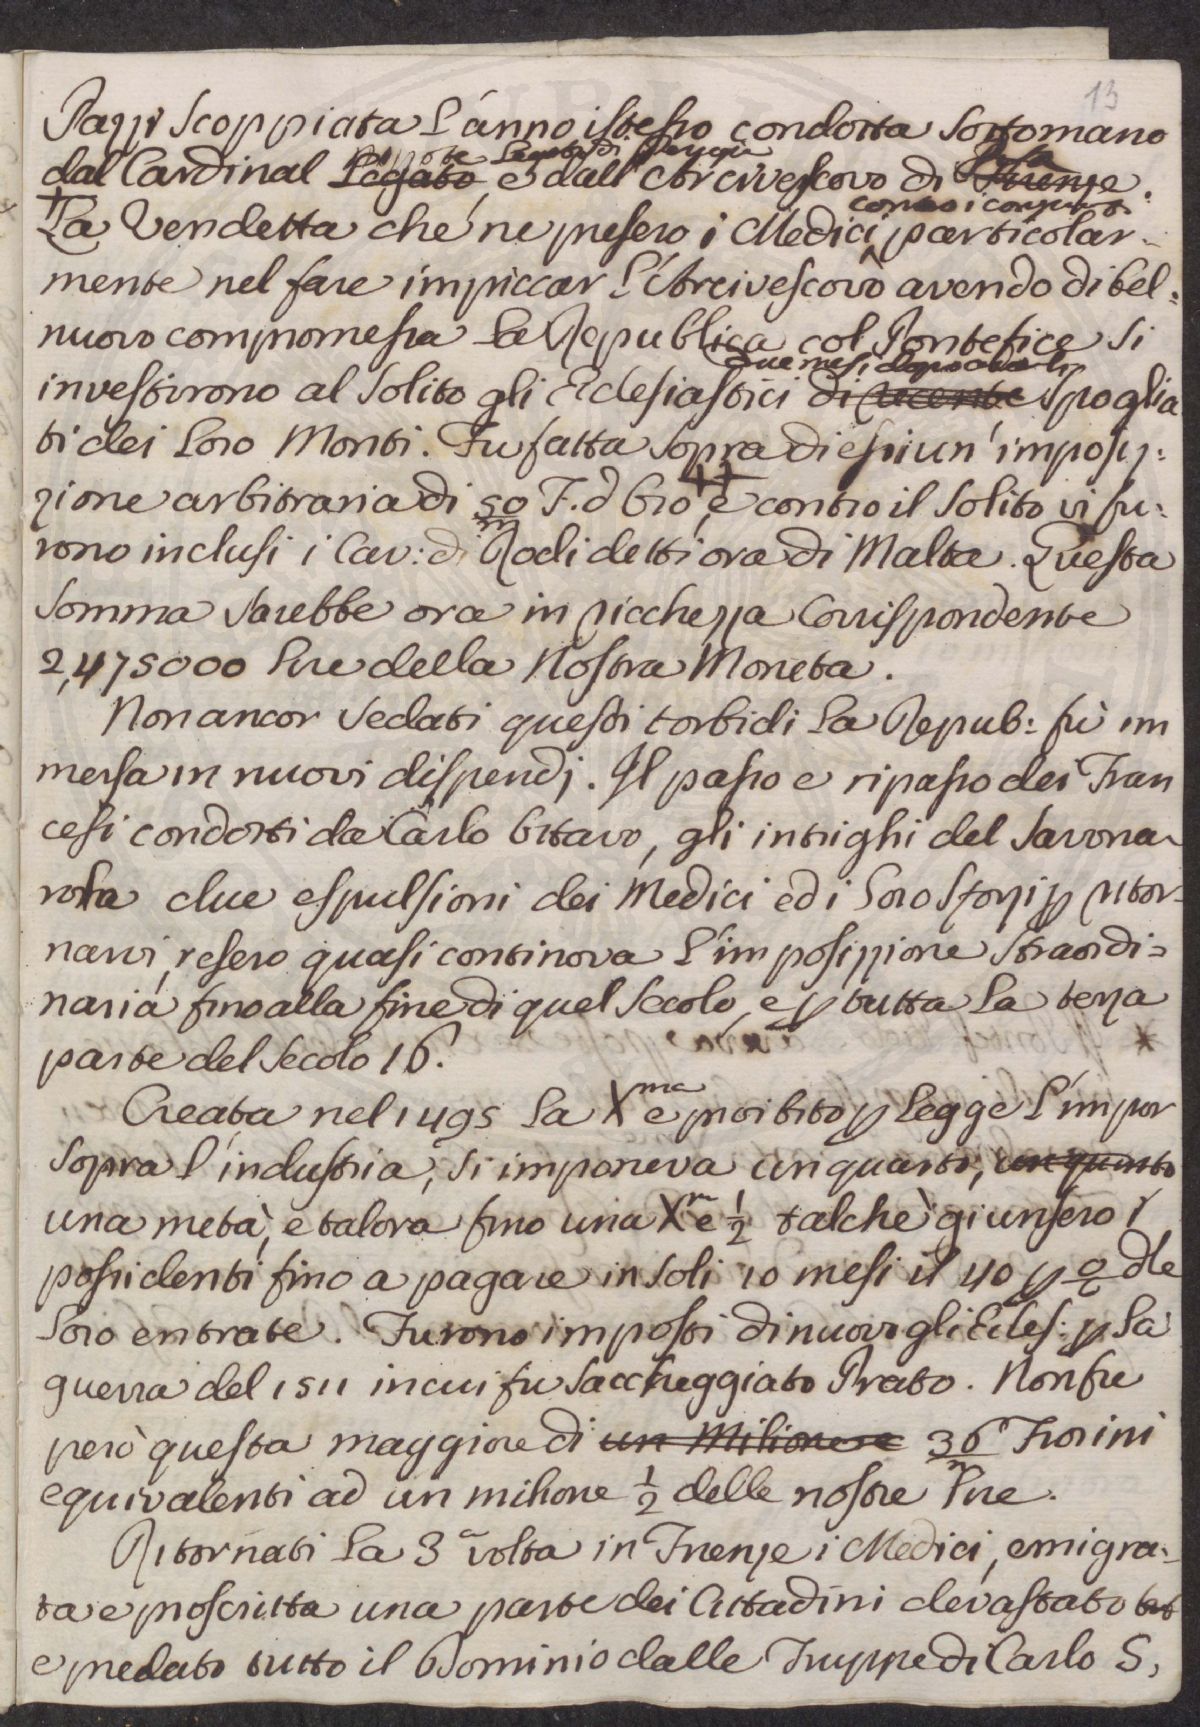 13
Pazzi scoppiata l'anno istesso condotta sottomano
nipote Legato di Perugia
dal Cardinal Legato, e dall'Arcivescovo di Firenze. Pisa
contro i congiurati
La Vendetta che ne presero i Medici particolar=
mente nel fare impiccar l'Arcivescovo avendo di bel=
nuovo compromessa la Republica col Pontefice si
due mesi dopo averli
investirono al solito gli Eclesiastici di recente spoglia
ti dei loro Monti. Fu fatta sopra di essi un'imposiz=
zione arbitraria di 50 m F. d'Oro, e contro il solito vi fu=
rono inclusi i Cav: di Rodi detti ora di Malta. Questa
somma sarebbe ora in ricchezza corrispondente
2,475000 lire della Nostra Moneta.
Non ancor sedati questi torbidi la Repub: fù im
mersa in nuovi dispendj. Il passo e ripasso dei Fran
cesi condotti da Carlo Ottavo, gli intrighi del Savona-
rola due espulsioni dei Medici ed i loro sforzi p ritor-
narvi, resero quasi continova l'imposizzione straordi=
naria fino alla fine di quel secolo, e p tutta la terza
parte del secolo 16.
Creata nel 1495 la Xma e proibito p Legge l'impor
sopra l'industria, si imponeva un quarto, un quinto
una metà, e talora fino una Xma e 1/2 talchè giunsero i
possidenti fino a pagare in soli 10 mesi il 40 p % dle
loro entrate. Furono imposti di nuovo gli Ecles: p la
guerra del 1511 in cui fu saccheggiato Prato. Non fu
però questa maggiore di un Milione e 36 m Fiorini
equivalenti ad un milione 1/2 delle nostre lire.
Ritornati la 3a volta in Firenze i Medici, emigra=
ta e proscritta una parte dei Cittadini devastato tut
e predato tutto il Dominio dalle Truppe di Carlo 5,